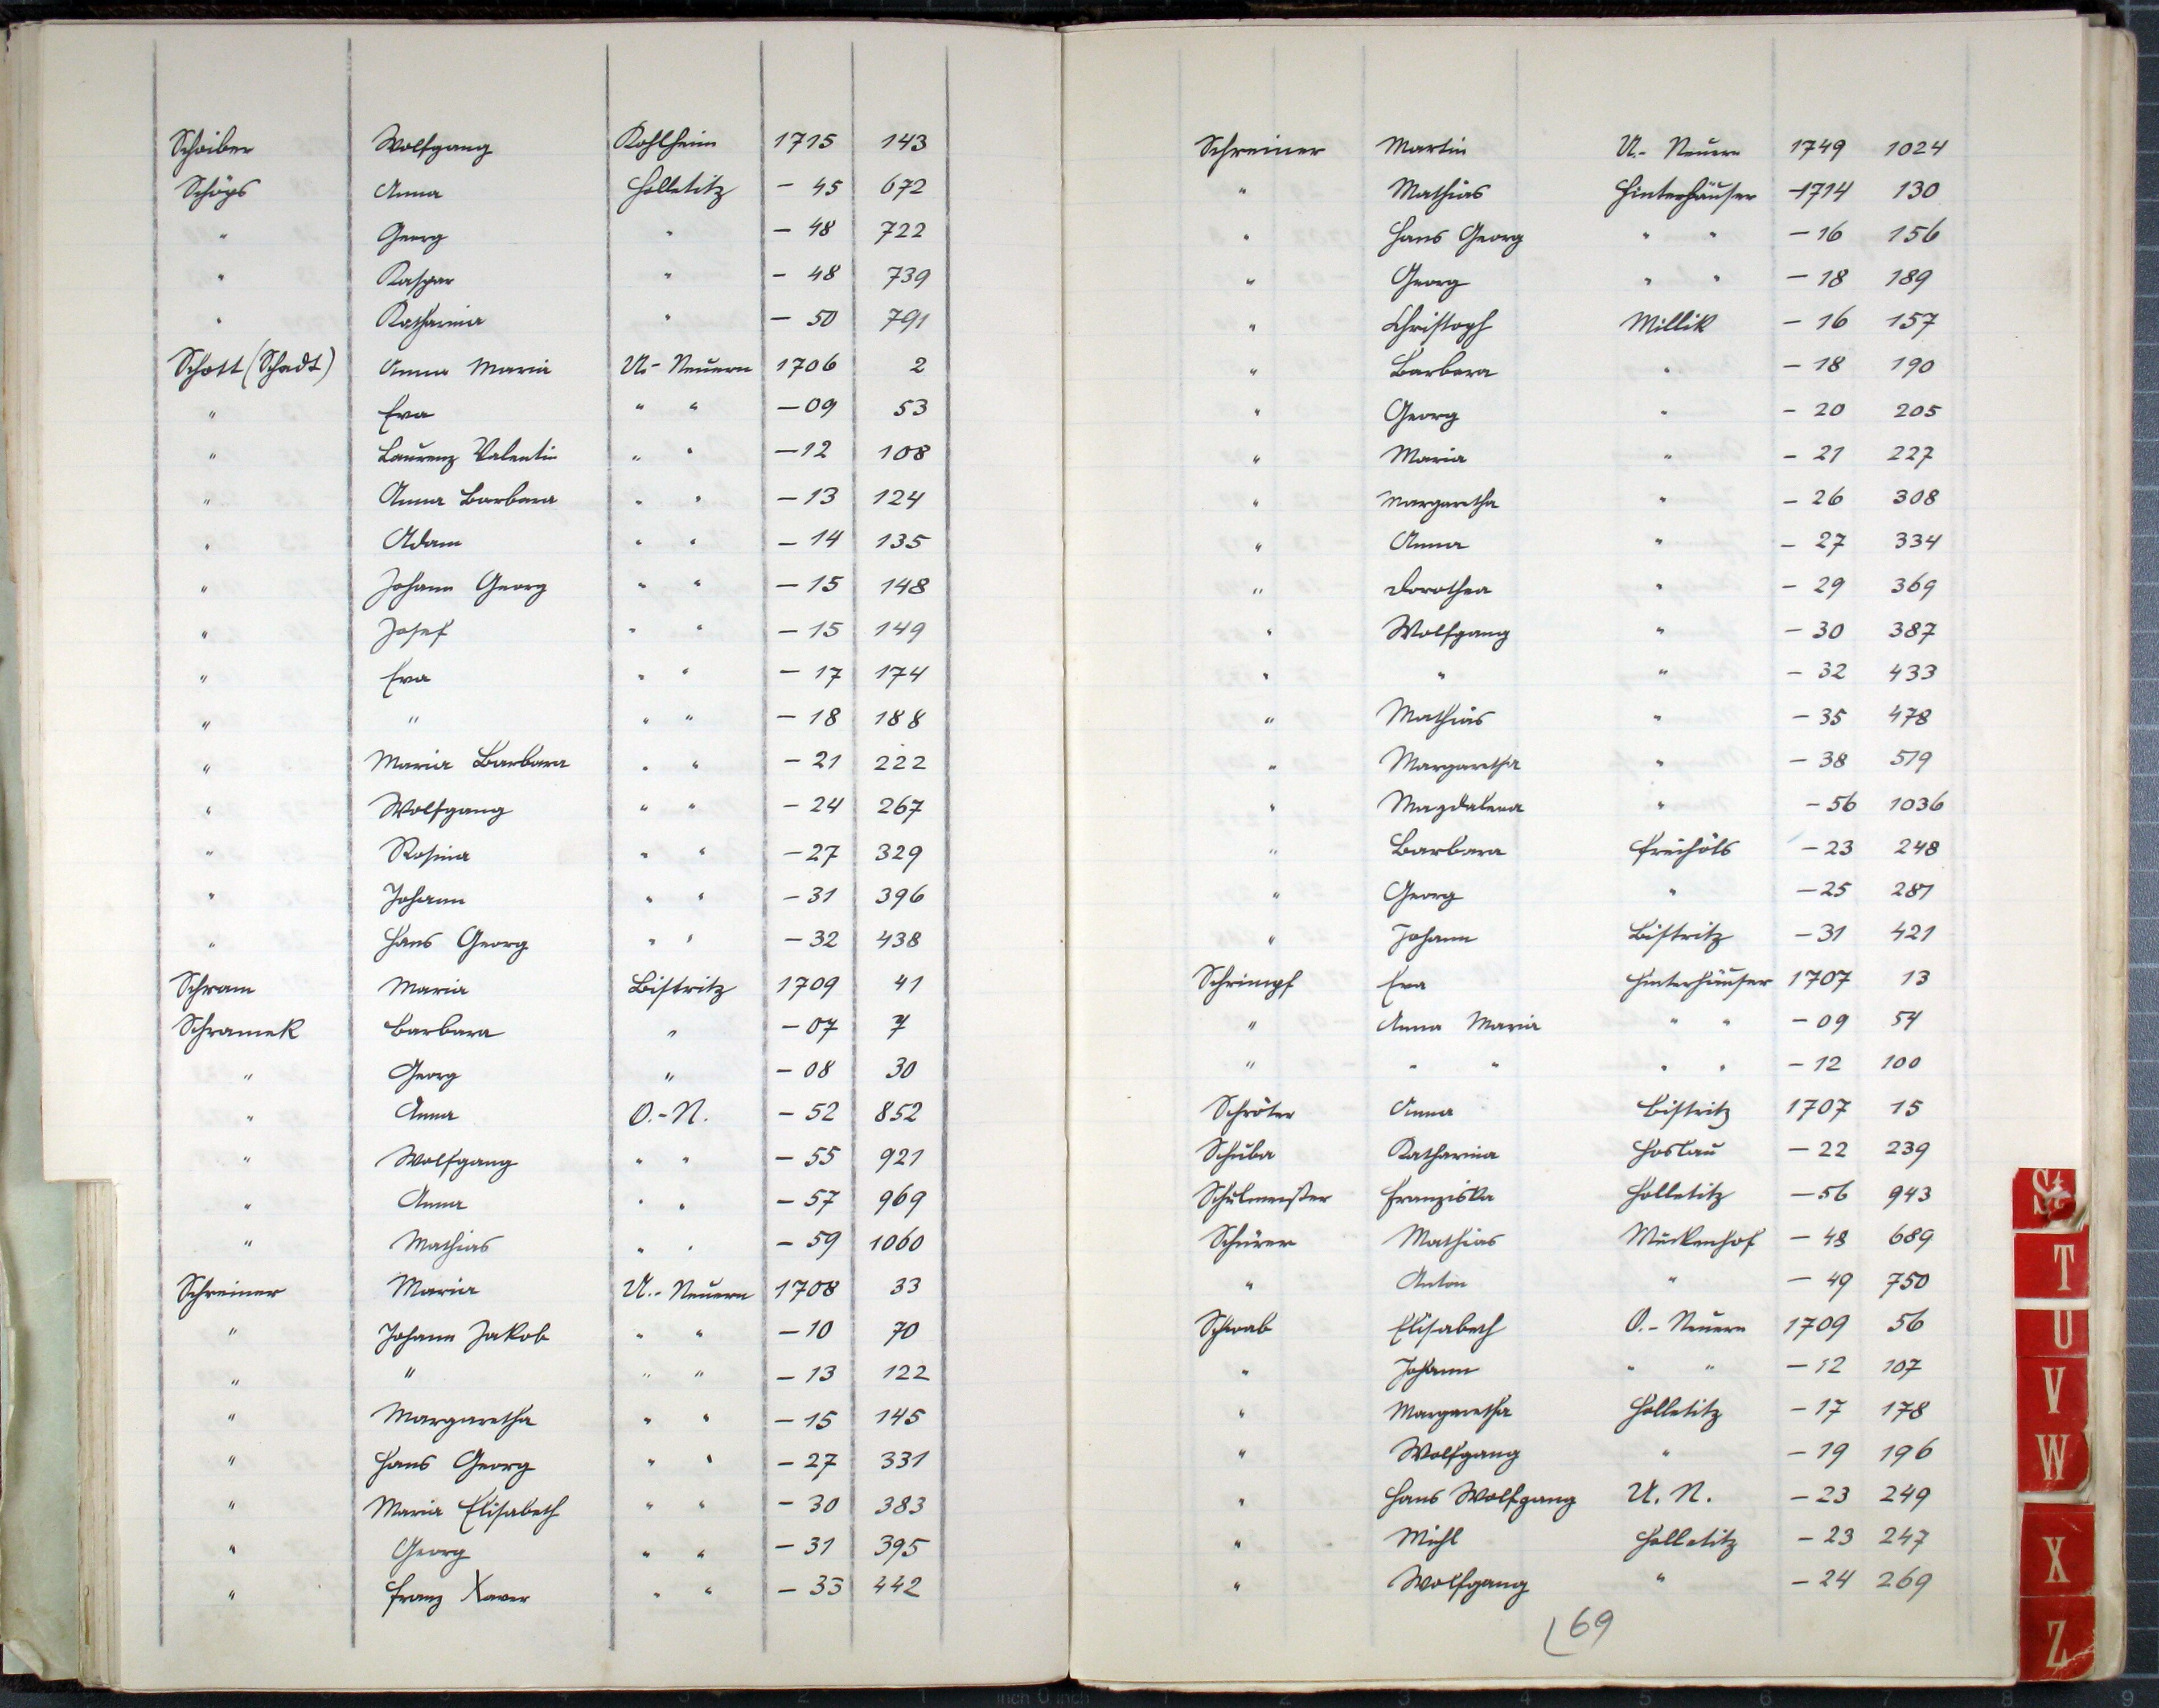 Schaiber Wolfgang Kohlheim 1715 143
Schöps Anna Holletitz - 45 672
" Georg " - 48 722
" Kaspar " - 48 739
" Katharina " - 50 791
Schott (Schadt) Anna Maria U.- Neuern 1706 2
" Eva " " - 09 53
" Laurenz Valentin " " - 12 108
" Anna Barbara " " - 13 124
" Adam " " - 14 135
" Johann Georg " " - 15 148
" Josef " " - 15 149
" Eva " " - 17 174
" " " " - 18 188
" Maria Barbara " " - 21 222
" Wolfgang " " - 24 267
" Rosina " " - 27 329
" Johann " " - 31 396
" Hans Georg " " - 32 438
Schram Maria Bistritz 1709 41
Schramek Barbara " - 07 7
" Georg " - 08 30
" Anna O.-N. - 52 852
" Wolfgang " " - 55 921
" Anna " " - 57 969
" Mathias " " - 59 1060
Schreiner Maria U.- Neuern 1708 33
" Johann Jakob " " - 10 70
" " " " - 13 122
" Margaretha " " - 15 145
" Hans Georg " " - 27 331
" Maria Elisabeth " " - 30 383
" Georg " " - 31 395
" Franz Xaver " " - 33 442
Schreiner Martin U.- Neuern 1749 1024
" Mathias Hinterhäuser -1714 130
" Hans Georg " " - 16 156
" Georg " " - 18 189
" Christoph Millik - 16 157
" Barbara " - 18 190
" Georg " - 20 205
" Maria " - 21 227
" Margaretha " - 26 308
" Anna " - 27 334
" Dorothea " - 29 369
" Wolfgang " - 30 387
" " " - 32 433
" Mathias " - 35 478
" Margaretha " - 38 519
" Magdalena " - 56 1036
" Barbara Freihöls - 23 248
" Georg " - 25 281
" Johann Bistritz - 31 421
Schrimpf Eva Hinterhäuser 1707 13
" Anna Maria " " - 09 54
" " " " " - 12 100
Schröter Anna Bistritz 1707 15
Schuba Katharina Hoslau - 22 239
Schulmeister Franziska Holletitz - 56 943
Schürer Mathias Muckenhof - 48 689
" Anton " - 49 750
Schwab Elisabeth O.- Neuern 1709 56
" Johann " " - 12 107
" Margaretha Holletitz - 17 178
" Wolfgang " - 19 196
" Hans Wolfgang U. N. - 23 249
" Michl Holletitz - 23 247
" Wolfgang " - 24 269
69
St
T
U
V
W
X
Z